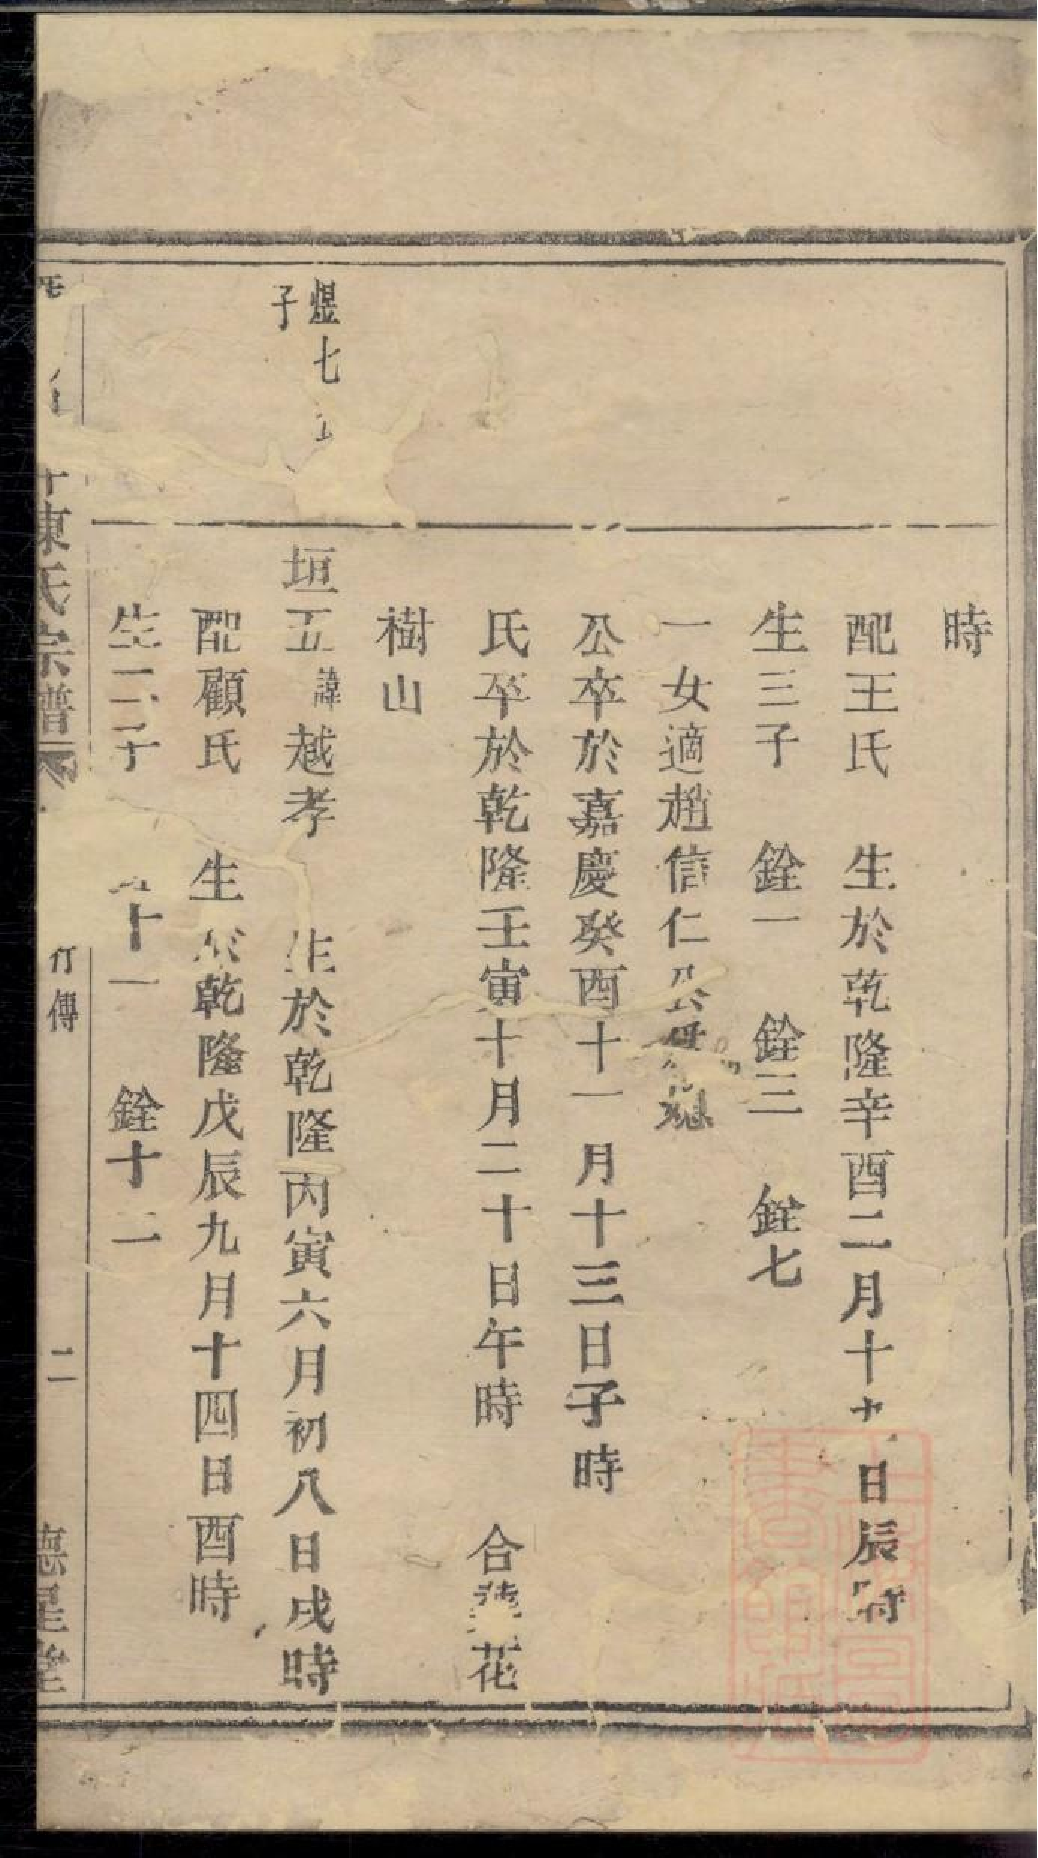 時
配王氏 生於乾隆辛酉二月十九日辰時
生三子 銓一 銓三 銓七
一女適趙信仁公
公卒於嘉慶癸酉十一月十三日子時
氏卒於乾隆壬寅十月二十日午時 合葬花
樹山
煜七
子
垣五諱越孝 生於乾隆丙寅六月初八日戌時
配顧氏 生於乾隆戊辰九月十四日酉時
生二子 十一 銓十二
陳氏宗譜
行傳
二
德星堂